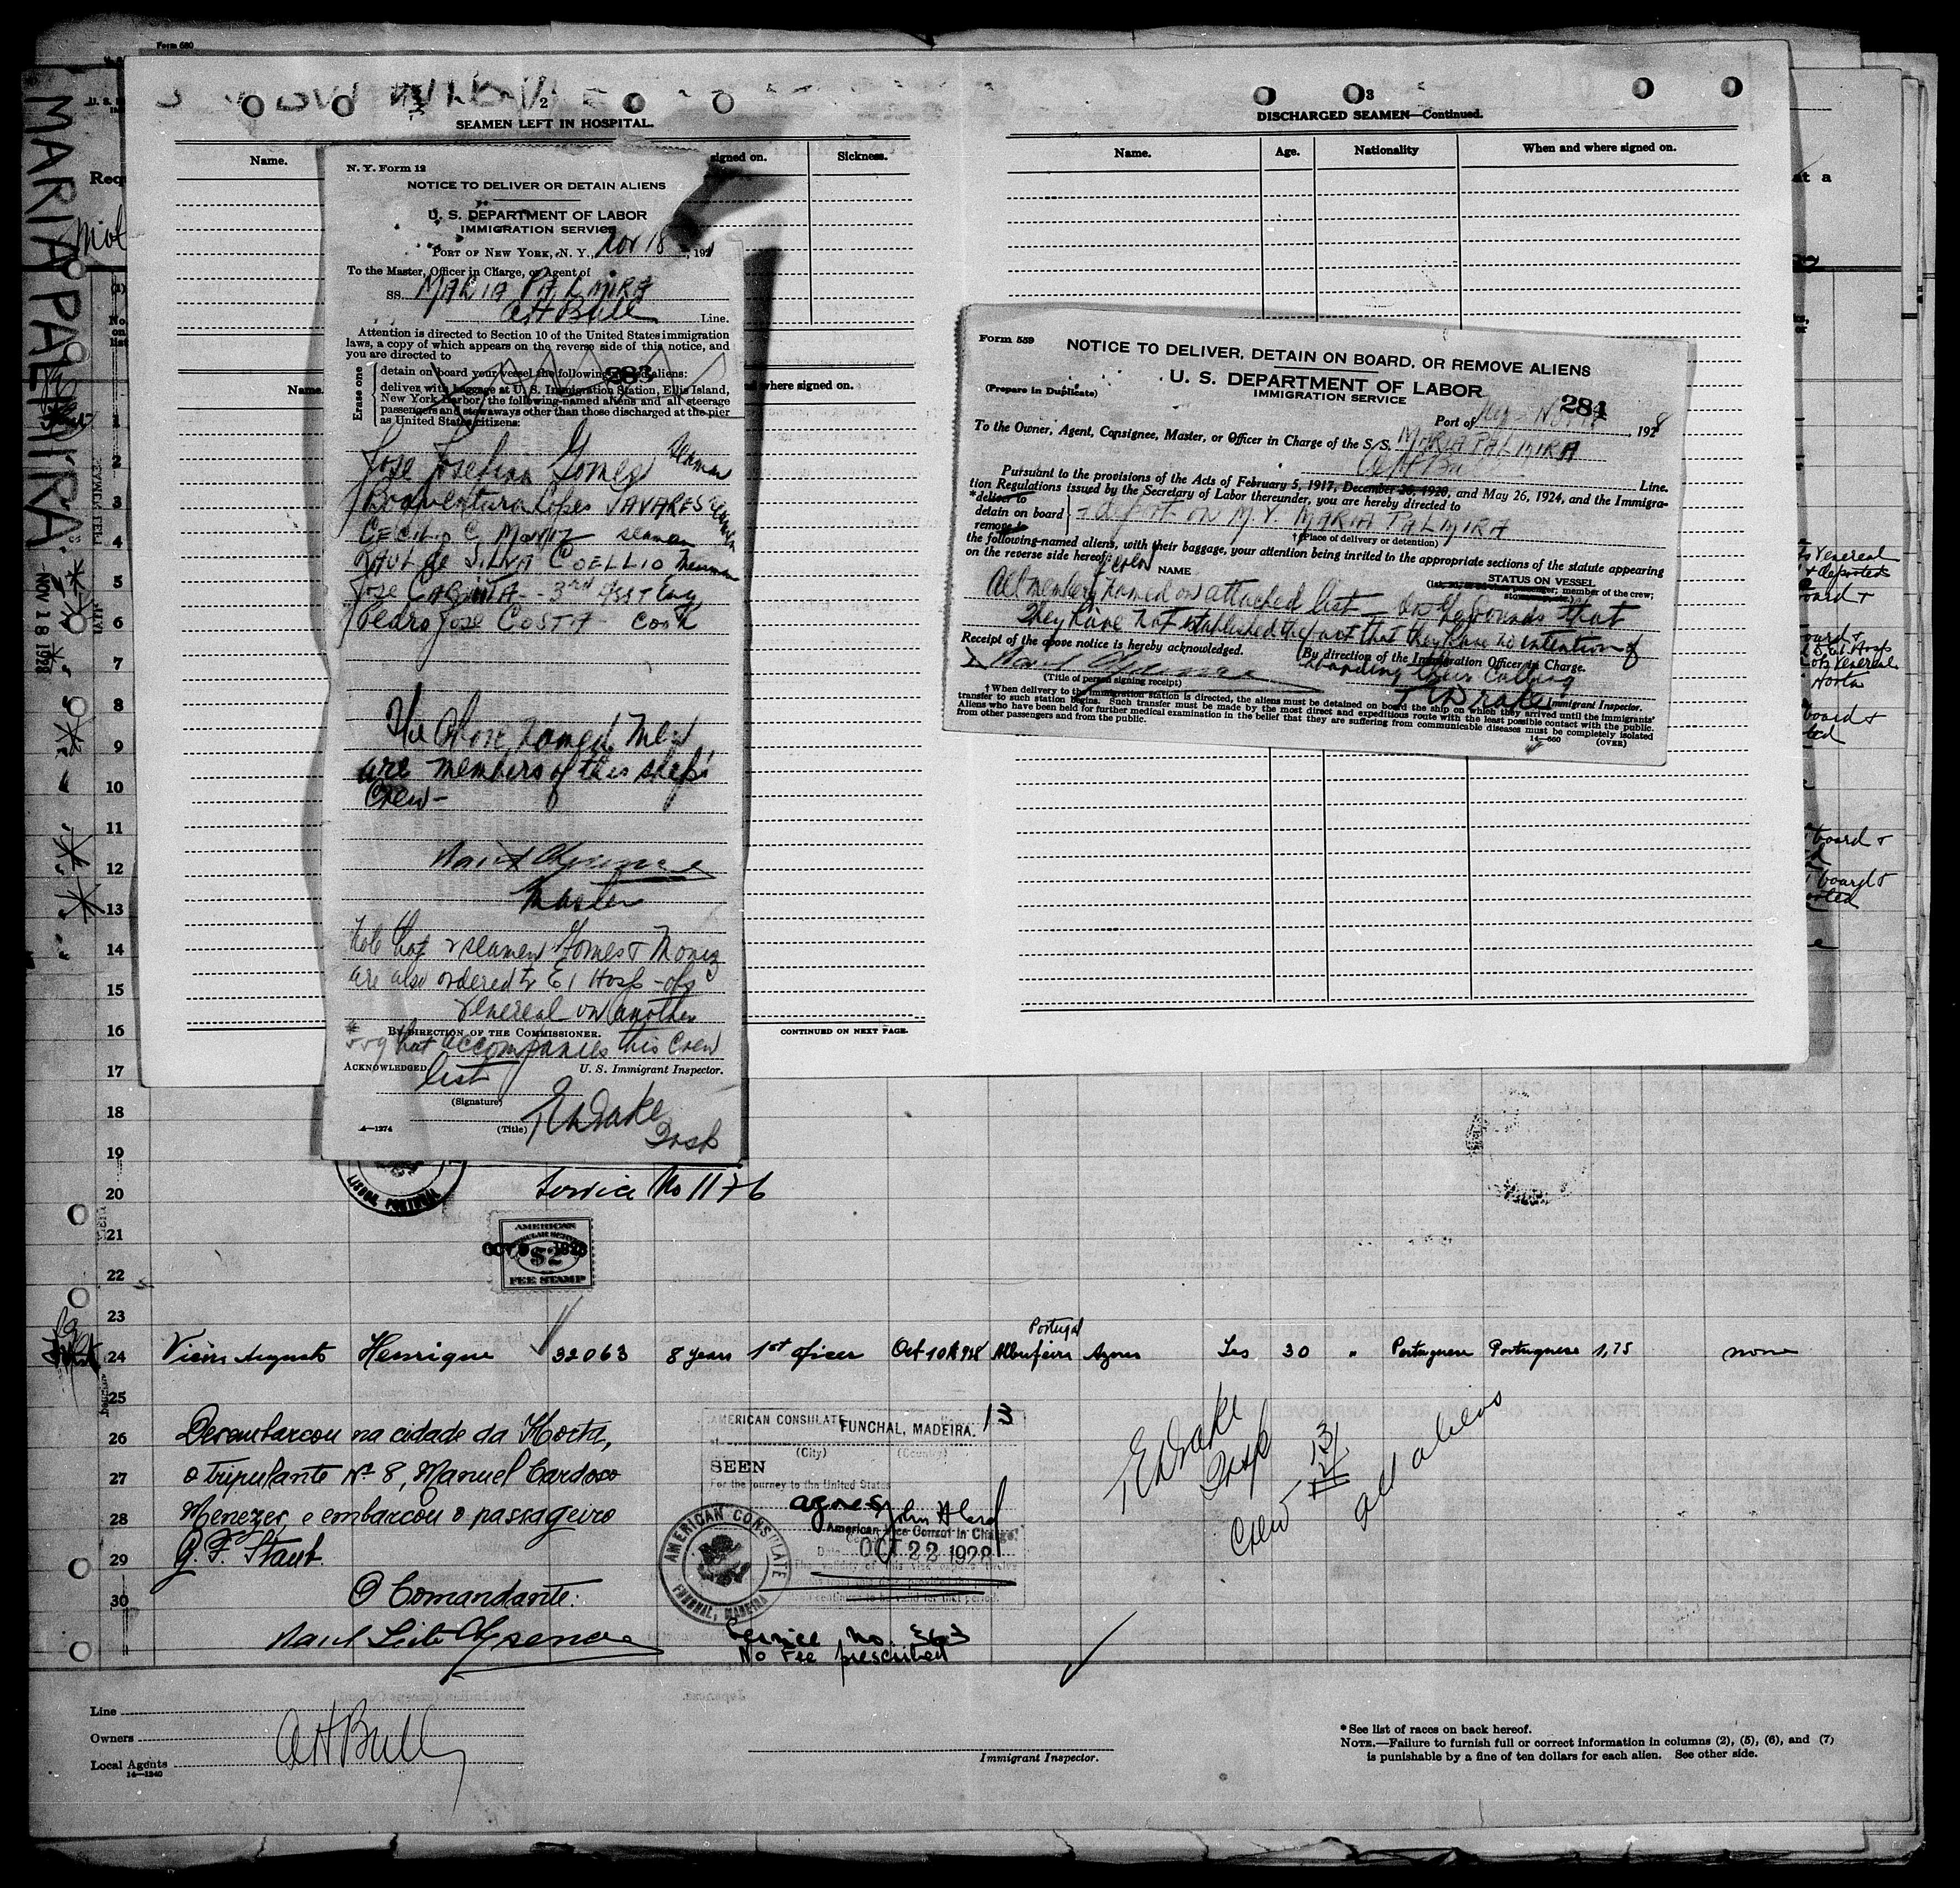 Form 680
MARIA PALMIRA.
NOV 18 1928
2
SEAMEN LEFT IN HOSPITAL.
Name.
signed on.
Sickness.
Name
where signed on.
CONTINUED ON NEXT PAGE.
3
DISCHARGED SEAMEN—Continued.
Name.
Age.
Nationality
When and where signed on.
N. Y. Form 12
NOTICE TO DELIVER OR DETAIN ALIENS
U. S. DEPARTMENT OF LABOR
IMMIGRATION SERVICE
PORT OF NEW YORK, N. Y., Nov 18, 192
To the Master, Officer in Charge, or Agent of
SS. MARIA PALMIRA
A H Bull Line.
Attention is directed to Section 10 of the United States immigration
laws, a copy of which appears on the reverse side of this notice, and
you are directed to
Erase one
detain on board your vessel the following-named aliens:
283
deliver with baggage at U. S. Immigration Station, Ellis Island,
New York Harbor, the following-named aliens and all steerage
passengers and stowaways other than those discharged at the pier
as United States citizens:
Jose Josefina Gomes Seaman
Boaventura Lopes TAVARES Seaman
CECILIO C MONIZ seaman
RAUL de SILVA COELLIO Seaman
Jose CAGINTA -- 3rd Asst Eng
Pedro Jose COSTA - Cook
The above named men
are members of this ship's
Crew -
Master
Note that 2 seamen Gomes & Moniz
are also ordered to E I Hosp - ofs
venereal on another
BY DIRECTION OF THE COMMISSIONER.
that accompanies this Crew
ACKNOWLEDGED list
U. S. Immigrant Inspector.
(Signature)
T E Drake
(Title)
Insp
4—1274
Form 559
NOTICE TO DELIVER, DETAIN ON BOARD, OR REMOVE ALIENS
(Prepare in Duplicate)
U. S. DEPARTMENT OF LABOR
IMMIGRATION SERVICE
284
Port of N Y - Nov 18, 1928
To the Owner, Agent, Consignee, Master, or Officer in Charge of the S/S. MARIA PALMIRA
A H Bull Line.
Pursuant to the provisions of the Acts of February 5, 1917, December 26, 1920, and May 26, 1924, and the Immigra-
tion Regulations issued by the Secretary of Labor thereunder, you are hereby directed to
*deliver to
detain on board
remove to
& deport on M.V. MARIA PALMIRA
†(Place of delivery or detention)
the following-named aliens, with their baggage, your attention being invited to the appropriate sections of the statute appearing
on the reverse side hereof:
NAME
STATUS ON VESSEL
member of the crew;
All members of crew named on attached list - on the grounds that
They have not established the fact that they have no intention of
Receipt of the above notice is hereby acknowledged.
By direction of the Immigration Officer in Charge.
abandoning their Calling
(Title of person signing receipt)
T E Drake
Immigrant Inspector.
†When delivery to the immigration station is directed, the aliens must be detained on board the ship on which they arrived until the immigrants'
transfer to such station begins. Such transfer must be made by the most direct and expeditious route with the least possible contact with the public.
Aliens who have been held for further medical examination in the belief that they are suffering from communicable diseases must be completely isolated
from other passengers and from the public.
14—660
(OVER)
1
2
3
4
5
6
7
8
9
10
11
12
13
14
15
16
17
18
19
LISBON, PORTUGAL
Service No 1176
20
21
AMERICAN
CONSULAR SERVICE
$2
FEE STAMP
22
23
24 Victor Augusto Henrique 32063 8 years 1st oficer Oct 10th 928 Albufeira Portugal Azores Yes 30 " Portuguese Portuguese 1,75 none
25
26
27
28
29
30
Desembarcou na cidade da Horta,
o tripulante Nº 8, Manuel Cardoso
Menezes, e embarcou o passageiro
G. F. Staub.
O Comandante:
AMERICAN CONSULATE FUNCHAL, MADEIRA. 13
(City) (Country)
SEEN
For the journey to the United States
American Vice Consul in Charge
Date OCT 22 1928
AMERICAN CONSULATE
FUNCHAL, MADEIRA
Service No. 363
No Fee prescribed
T E Drake
Insp
Crew
all aliens
Line
Owners
Local Agents
A H Bull
14—1240
Immigrant Inspector.
*See list of races on back hereof.
NOTE.—Failure to furnish full or correct information in columns (2), (5), (6), and (7)
is punishable by a fine of ten dollars for each alien. See other side.